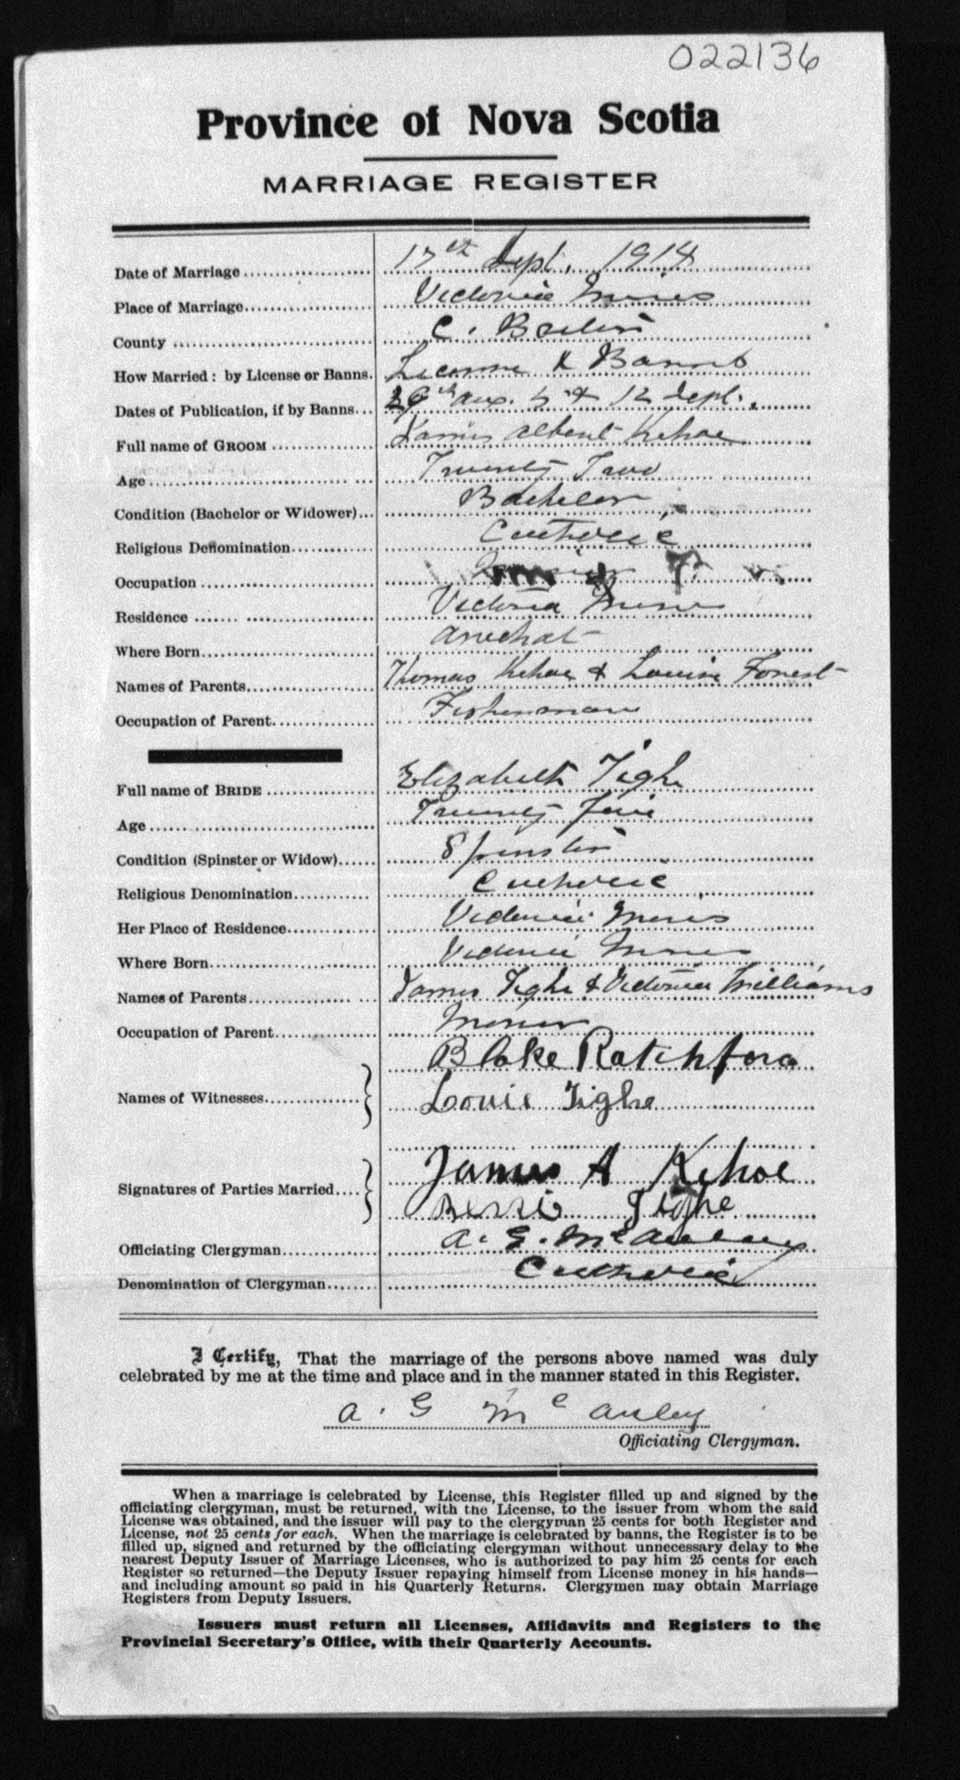 022136
Province of Nova Scotia
MARRIAGE REGISTER
Date of Marriage 17th Sept. 1918
Place of Marriage Victoria Mines
County C. Breton
How Married: by License or Banns. License & Banns
Dates of Publication, if by Banns 29th Aug. 5 & 12 Sept.
Full name of GROOM James Albert Kehoe
Age Twenty Two
Condition (Bachelor or Widower) Bachelor
Religious Denomination Catholic
Occupation
Residence Victoria Mines
Where Born Arichat
Names of Parents Thomas Kehoe & Louise Forest
Occupation of Parent Fisherman
Full name of BRIDE Elizabeth Tighe
Age Twenty Five
Condition (Spinster or Widow) Spinster
Religious Denomination Catholic
Her Place of Residence Victoria Mines
Where Born Victoria Mines
Names of Parents James Tighe & Victoria Williams
Occupation of Parent Miner
Names of Witnesses Blake Ratchford
Louie Tighe
Signatures of Parties Married James A Kehoe
Bessie Tighe
Officiating Clergyman A. G. McAuley
Denomination of Clergyman Catholic
I Certify, That the marriage of the persons above named was duly
celebrated by me at the time and place and in the manner stated in this Register.
A. G McAuley
Officiating Clergyman.
When a marriage is celebrated by License, this Register filled up and signed by the
officiating clergyman, must be returned, with the License, to the issuer from whom the said
License was obtained, and the issuer will pay to the clergyman 25 cents for both Register and
License, not 25 cents for each. When the marriage is celebrated by banns, the Register is to be
filled up, signed and returned by the officiating clergyman without unnecessary delay to the
nearest Deputy Issuer of Marriage Licenses, who is authorized to pay him 25 cents for each
Register so returned—the Deputy Issuer repaying himself from License money in his hands—
and including amount so paid in his Quarterly Returns. Clergymen may obtain Marriage
Registers from Deputy Issuers.
Issuers must return all Licenses, Affidavits and Registers to the
Provincial Secretary's Office, with their Quarterly Accounts.